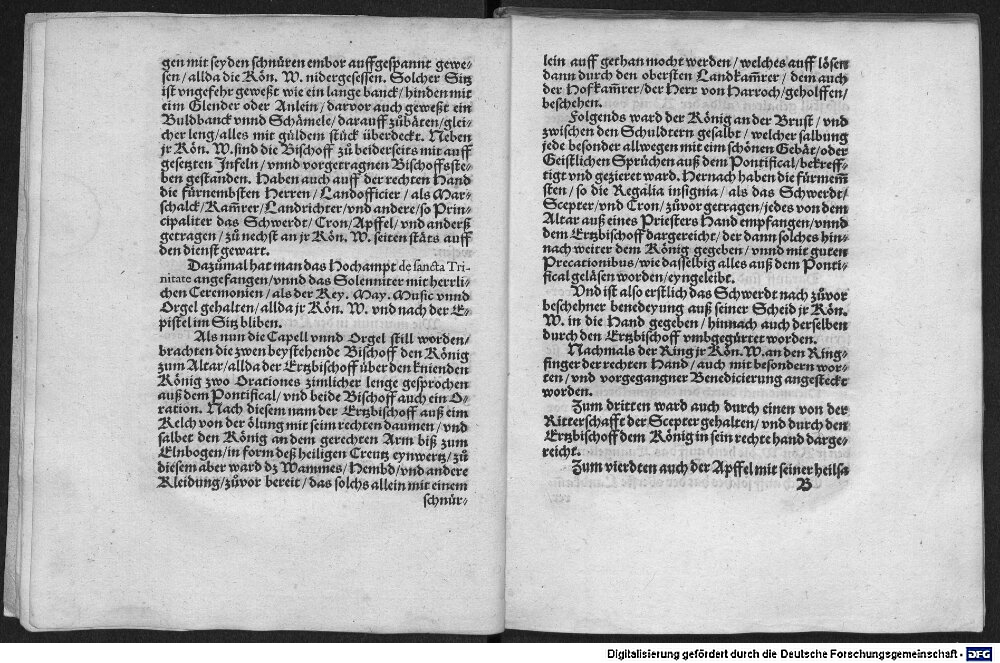 gen mit seyden schnüren embor auffgespannt gewe-
sen / allda die Kön. W. nidergesessen. Solcher Sitz
ist vngefehr geweßt wie ein lange banck / hinden mit
eim Glender oder Anlein / darvor auch geweßt ein
Buldbanck vnnd Schämele / darauff zůbäten / glei-
cher leng / alles mit güldem stück überdeckt. Neben
jr Kön. W. sind die Bischoff zů beiderseits mit auff
gesetzten Infeln / vnnd vorgetragnen Bischoffsste-
ben gestanden. Haben auch auff der rechten Hand
die fürnembsten Herren / Landofficier / als Mar-
schalck / Kam̃rer / Landrichter / vnd andere / so Prin-
cipaliter das Schwerdt / Cron / Apffel / vnd anderß
getragen / zů nechst an jr Kön. W. seiten stäts auff
den dienst gewart.
Dazůmal hat man das Hochampt de sancta Tri-
nitate angefangen / vnnd das Solenniter mit herrli-
chen Ceremonien / als der Rey. May. Music vnnd
Orgel gehalten / allda jr Kön. W. vnd nach der E-
pistel im Sitz bliben.
Als nun die Capell vnnd Orgel still worden /
brachten die zwen beystehende Bischoff den König
zum Altar / allda der Ertzbischoff über den knienden
König zwo Orationes zimlicher lenge gesprochen
auß dem Pontifical / vnd beide Bischoff auch ein O-
ration. Nach diesem nam der Ertzbischoff auß eim
Kelch von der ölung mit seim rechten daumen / vnd
salbet den König an dem gerechten Arm biß zum
Elnbogen / in form deß heiligen Creutz eynwertz / zů
diesem aber ward dz Wammes / Hembd / vnd andere
Kleidung / zůvor bereit / das solchs allein mit einem
schnür-
lein auff gethan mocht werden / welches auff lösen
dann durch den obersten Landkam̃rer / dem auch
der Hofkam̃rer / der Herr von Harroch / geholffen /
beschehen.
Folgends ward der König an der Brust / vnd
zwischen den Schuldtern gesalbt / welcher salbung
jede besonder allwegen mit eim schönen Gebät / oder
Geistlichen Sprüchen auß dem Pontifical / bekreff-
tigt vnd gezieret ward. Hernach haben die fürnem̃
sten / so die Regalia insignia / als das Schwerdt /
Scepter / vnd Cron / zůvor getragen / jedes von dem
Altar auß eines Priesters Hand empfangen / vnnd
dem Ertzbischoff dargereicht / der dann solches hin-
nach weiter dem König gegeben / vnnd mit guten
Precationibus / wie dasselbig alles auß dem Ponti-
fical geläsen worden / eyngeleibt.
Vnd ist also erstlich das Schwerdt nach zůvor
beschehner benedeyung auß seiner Scheid jr Kön.
W. in die Hand gegeben / hinnach auch derselben
durch den Ertzbischoff vmbgegürtet worden.
Nachmals der Ring jr Kön. W. an den Ring-
finger der rechten Hand / auch mit besondern wor-
ten / vnd vorgegangner Benedicierung angesteckt
worden.
Zum dritten ward auch durch einen von der
Ritterschafft der Scepter gehalten / vnd durch den
Ertzbischoff dem König in sein rechte hand darge-
reicht.
Zum vierdten auch der Apffel mit seiner heilsa
B
Digitalisierung gefördert durch die Deutsche Forschungsgemeinschaft - DFG